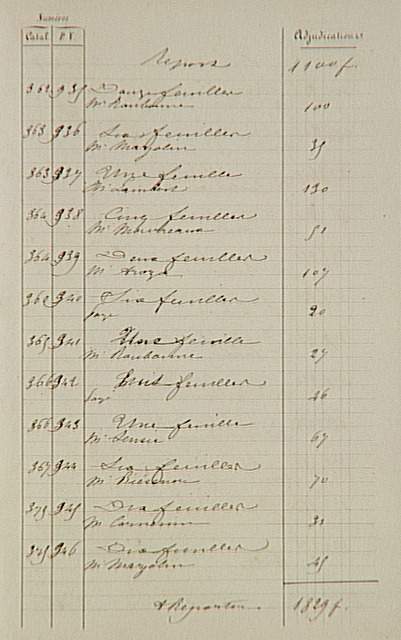 Numéros
Catal. P.V. Adjudications
Report 1100 f.
362 935 Douze feuilles
Mr Roubaune 100
363 936 Six feuilles
Mr Marjolin 35
363 937 Une feuille
Mr Lambert 130
364 938 Cinq feuilles
Mr 51
364 939 Deux feuilles
Mr Aroza 107
362 940 Six feuilles
20
365 941 Une feuille
Mr Roubaune 27
366 942 Trois feuilles
46
366 943 Une feuille
Mr Sensier 67
367 944 Six feuilles
Mr 70
375 945 Dix feuilles
Mr 31
375 946 Dix feuilles
Mr Marjolin 45
A Reporter 1829 f.